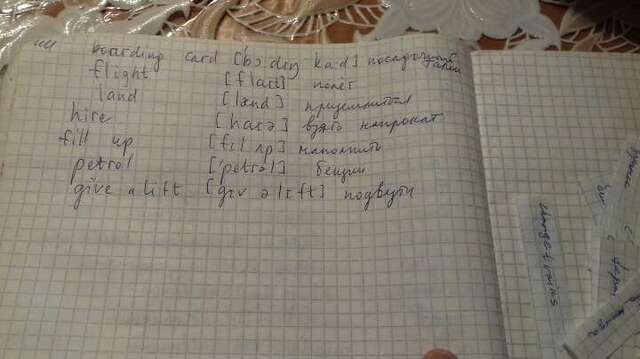 boarding card [bɔ:dɪŋ ka:d] посадочный талон
flight [flaɪt] полёт
land [lænd] приземлиться
hire [haɪə] взять напрокат
fill up [fɪl ʌp] наполнить
petrol ['petrəl] бензин
give a lift [gɪv ə lɪft] подвезти